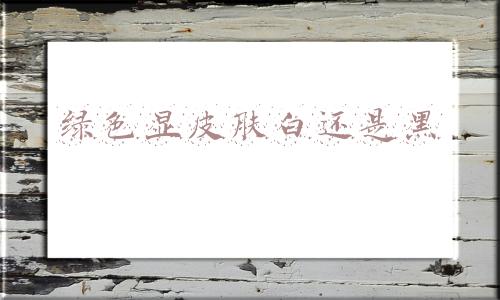 绿色显皮肤白还是黑